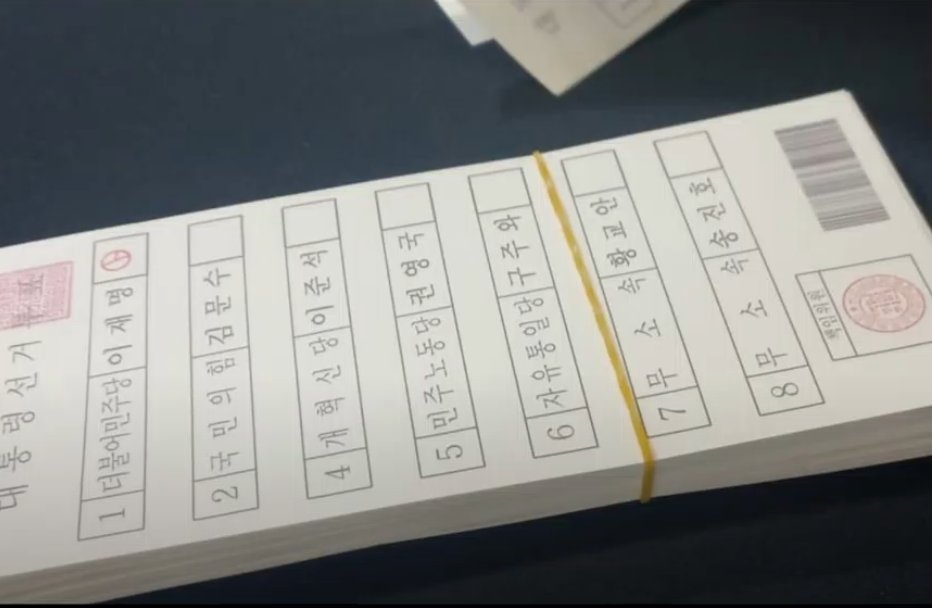 대통령선거
투표
1 더불어민주당 이재명
2 국민의힘 김문수
4 개혁신당 이준석
5 민주노동당 권영국
6 자유통일당 구주와
7 무소속 황교안
8 무소속 송진호